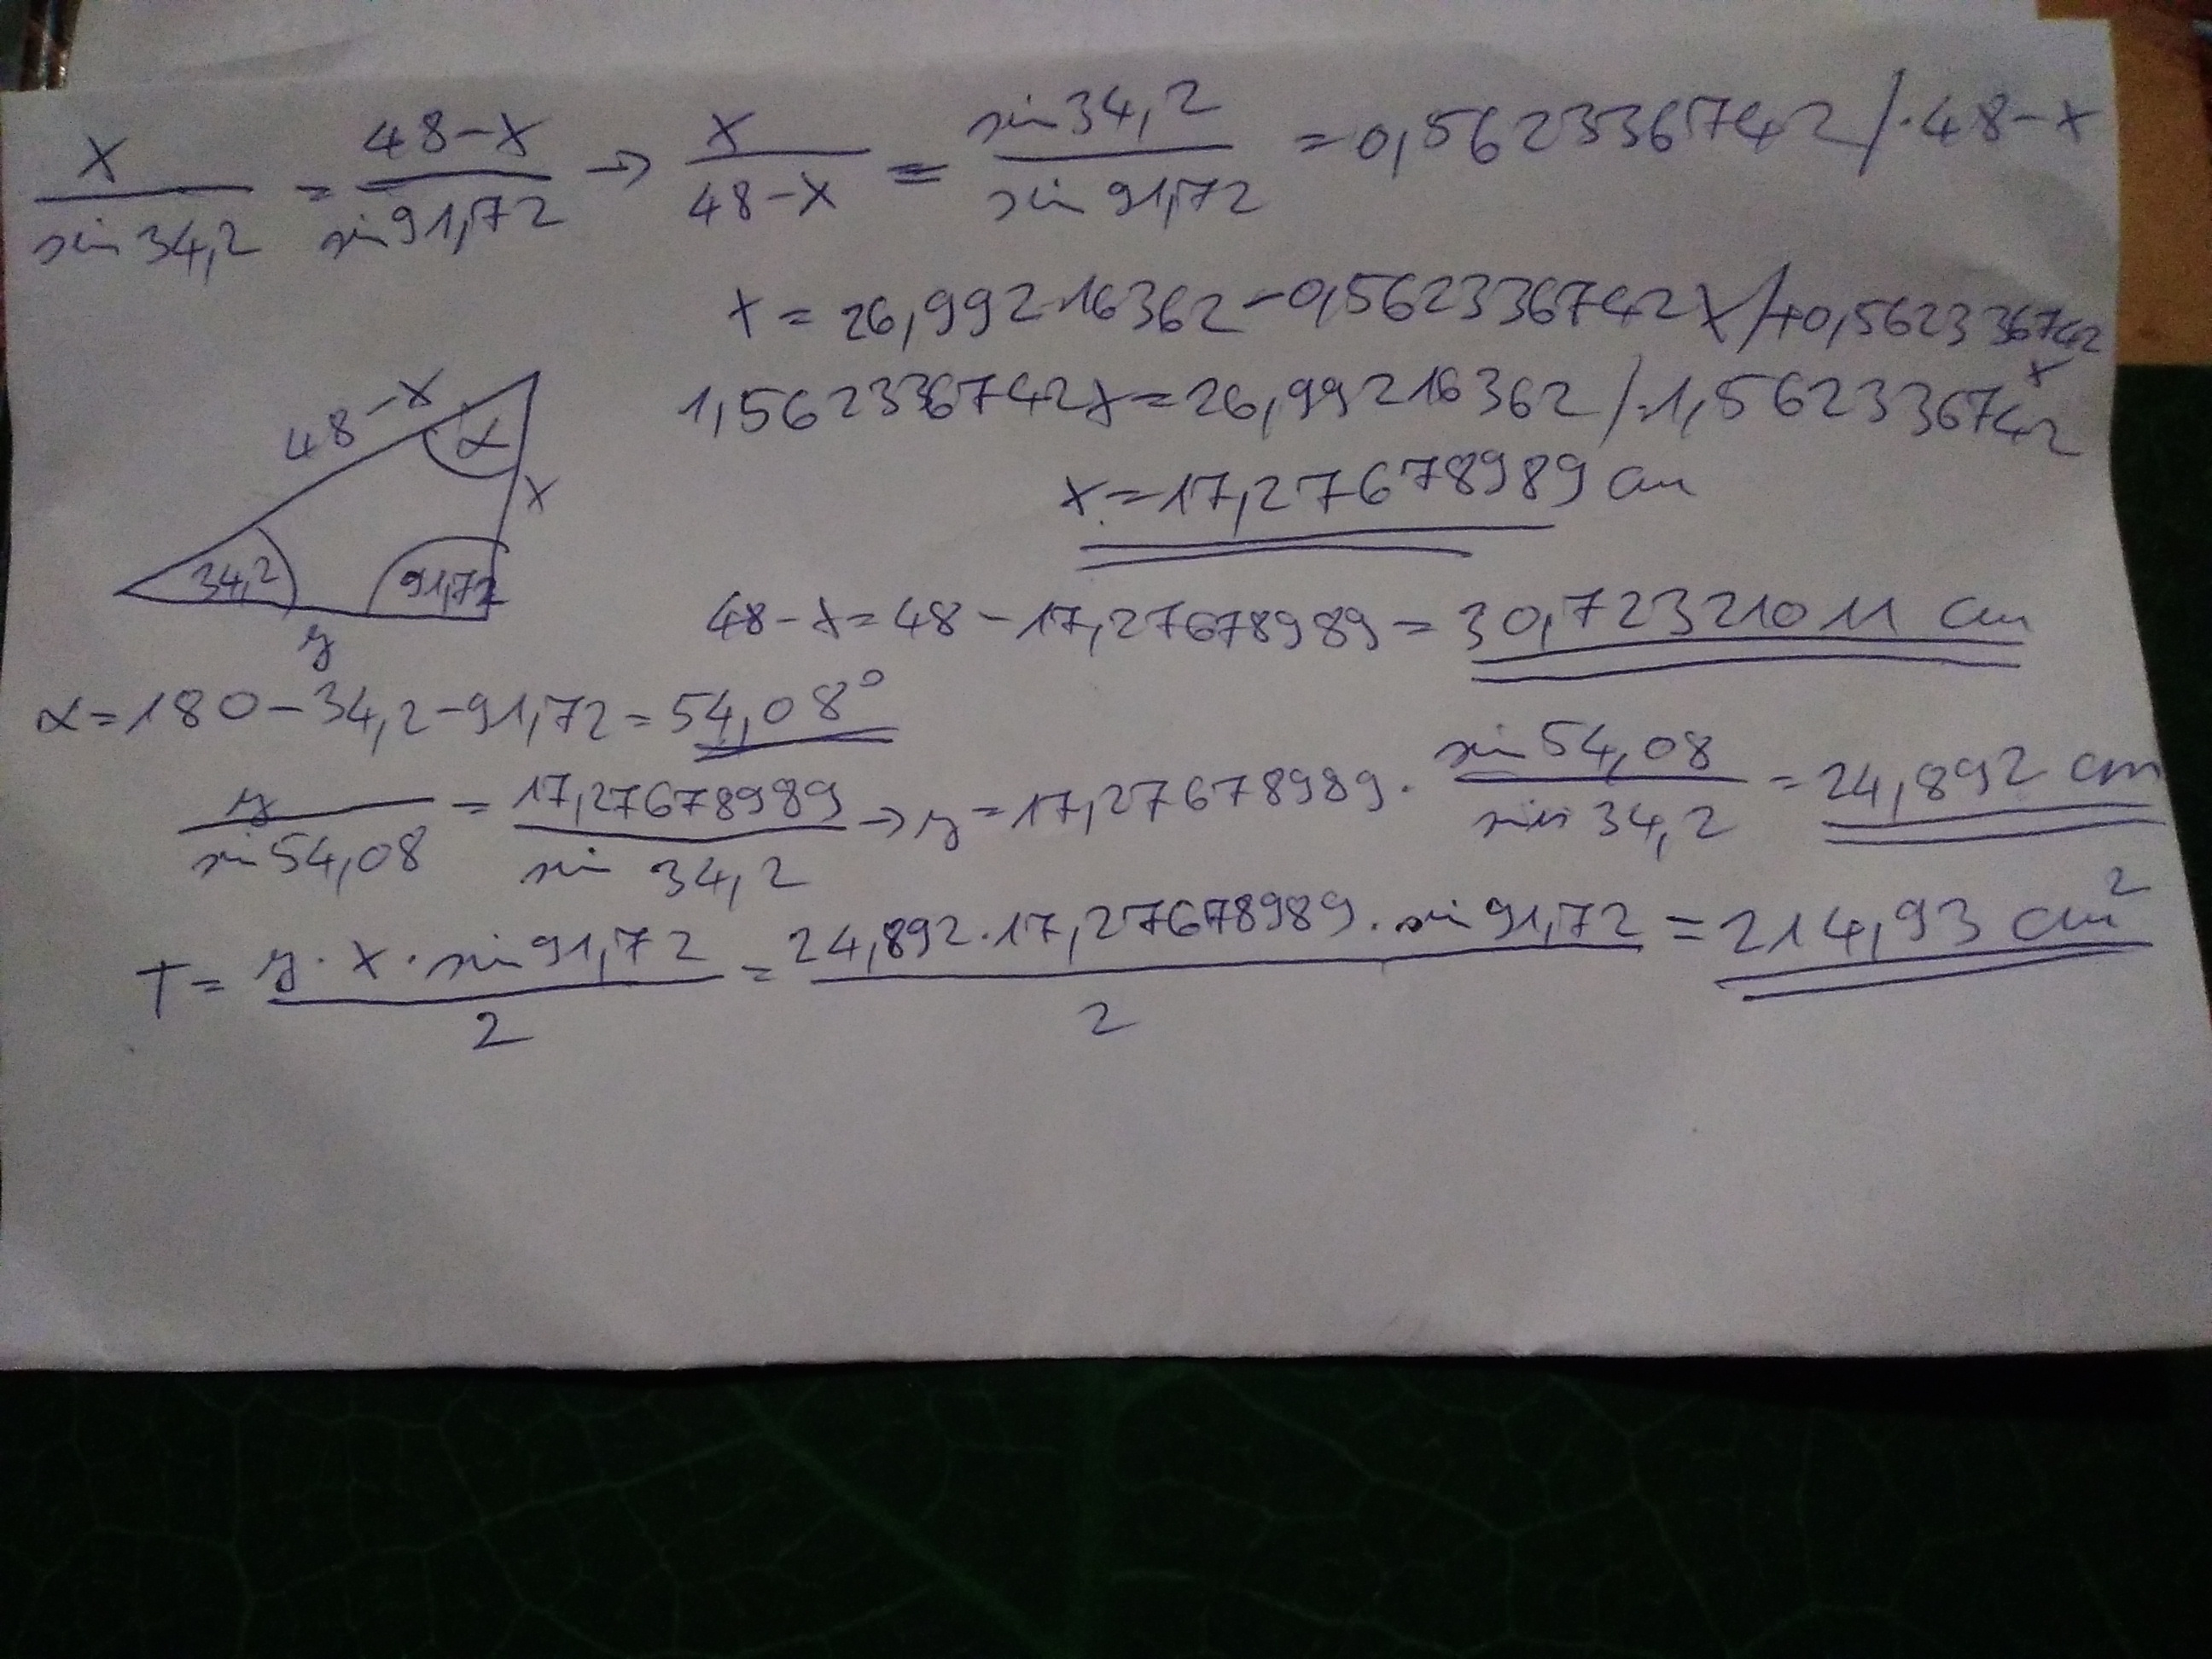 x/sin 34,2 = 48-x/sin 91,72 → x/48-x = sin 34,2/sin 91,72 = 0,562336742 /·48-x
x = 26,99216362 - 0,562336742x /+0,562336742x
1,562336742x = 26,99216362 /:1,562336742
x = 17,27678989 cm
48-x
α
x
34,2
91,72
y
48-x = 48 - 17,27678989 = 30,72321011 cm
α = 180 - 34,2 - 91,72 = 54,08°
y/sin 54,08 = 17,27678989/sin 34,2 → y = 17,27678989 · sin 54,08/sin 34,2 = 24,892 cm
T = y · x · sin 91,72/2 = 24,892 · 17,27678989 · sin 91,72/2 = 214,93 cm²